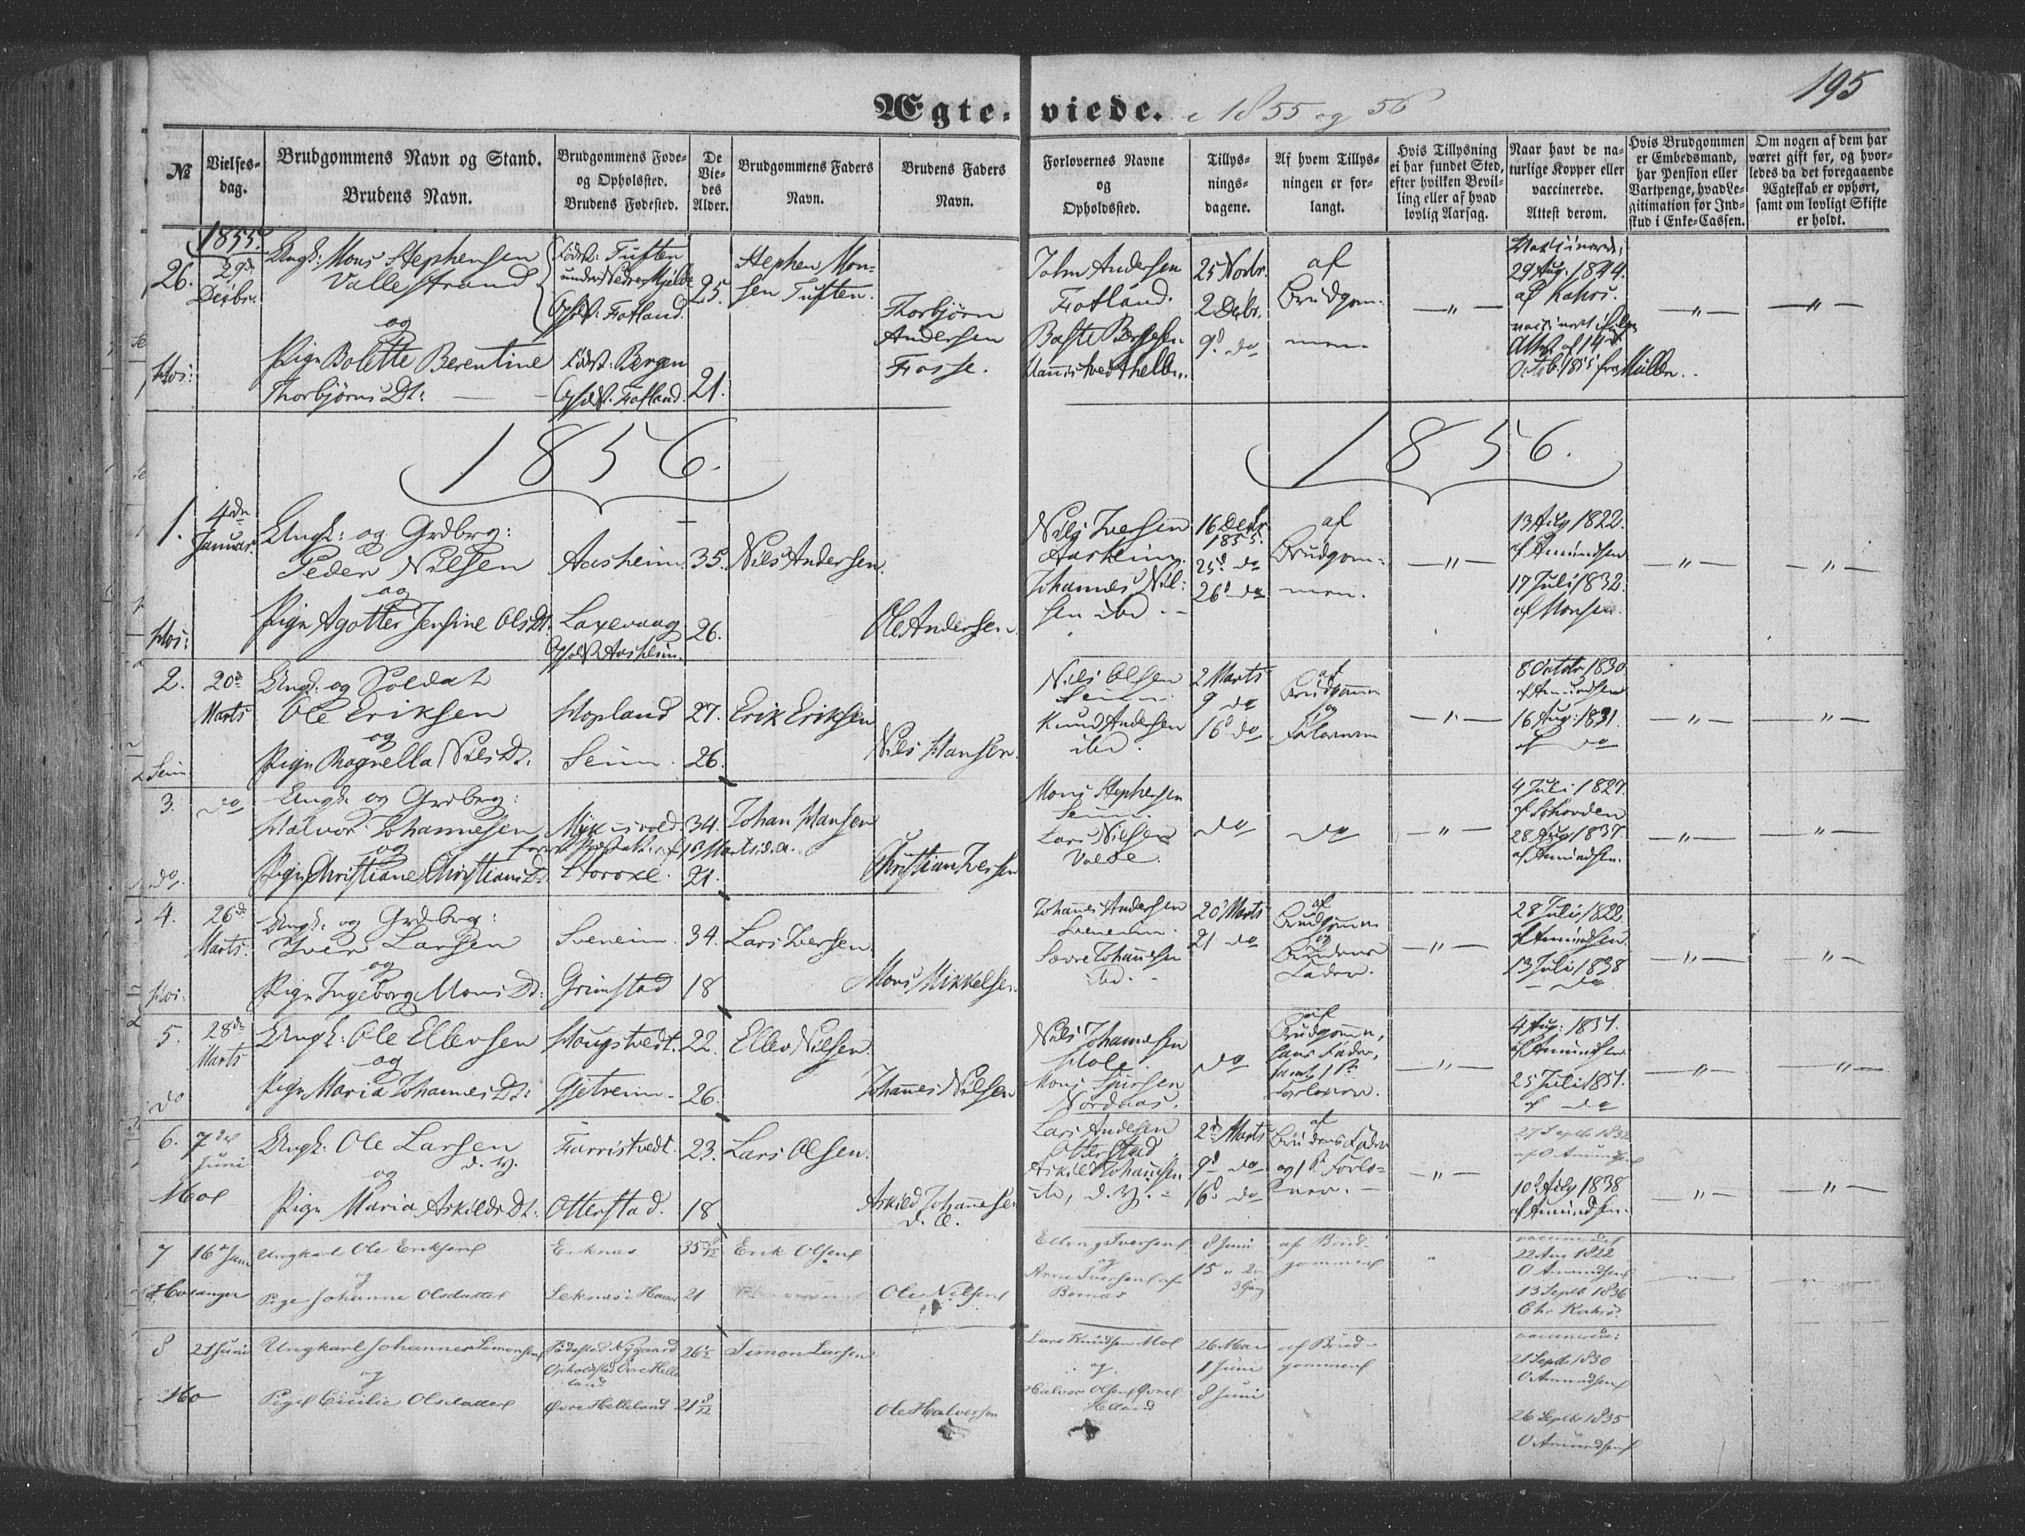 195
Ægte- viede. i 1855 og 56
№
Vielses-
dag.
Brudgommens Navn og Stand.
Brudens Navn.
Brudgommens Føde-
og Opholssted.
Brudens Fødested.
De
Vie-
des
Alder.
Brudgommens Faders
Navn.
Brudens Faders
Navn.
Forlovernes Navne
og
Opholdssted.
Tillys-
nings-
dagene.
Af hvem Tillys-
ningen er for-
langt.
Hvis Tillysning
ei har fundet Sted,
efter hvilken Bevil-
ling eller af hvad
lovlig Aarsag.
Naar havt de na-
turlige Kopper eller
vaccinerede.
Attest derom.
Hvis Brudgommen
er Embedsmand,
har Pension eller
Vartpenge, hvad Le-
gitimation for Ind-
skud i Enke-Cassen.
Om nogen af dem har
været gift før, og hvor-
ledes da det foregaaende
Ægteskab er ophørt,
samt om lovligt Skifte
er holdt.
1855.
26. 29d. Decbr.
Ungk: Mons Stephensen
Vallestrand
og
Pign Bolette Berentine
Thorbjørns Dt:
Tuften
under Nedre Mjelde
Opholdst: Fotland
Fødst: Bergen
Opholdst: Fotland
25.
21.
Stephen Mon-
sen Tuften.
Thorbjørn
Andersen
Fosse.
John Andersen
Fotland.
25 Novbr.
2 Decbr.
9d do
af
Brudgom-
men.
29 Aug: 1844.
af Kahrs.
1856.
1856.
1. 4de Januar.
Ungk: og Grdbrg:
Peder Nilsen
og
Pign Agotte Jensine Ols Dt.
Aasheim
Laxevaag
Opholdst Aasheim.
35.
26.
Nils Andersen.
Ole Andersen.
Nils Iversen
Aasheim.
Johannes Nil-
sen ibd.
16 Decbr
1855.
23d do
26d do
af
Brudgom-
men.
13 Aug 1822.
af Amundsen
17 Juli 1832.
af Monsen.
2. 20d Marts
Seim
Ungk: og Soldat
Ole Eriksen
og
Pign Ragnella Nils Dt.
Hopland
Seim.
27.
26.
Erik Eriksen
Nils Hansen.
Nils Olsen
Seim.
Knud Andersen
ibd.
2 Marts
9 do
16d do
af
Brudgommen
og
8 Octobr 1830
af Amundsen
16 Aug: 1831.
af do
3. do
do.
Ungk: og Grdbrg:
Halvor Johannesen
og
Pign Christiane Christians Dt.
34.
21.
Johan Hansen
Christian Iversen
Mons Stephensen
Seim.
Lars Nilsen
do
do
4 Juli 1827.
28 Aug 1837.
af Amundsen.
4. 26d. Marts.
Ungk: og Grdbrg:
Iver Larsen
og
Pign Ingeborg Mons Dt:
Sveneim.
Grimstad
34.
18
Lars Iversen.
Mons Mikkelsen.
Johannes Andersen
Sveneim.
Johannesen
ibd.
20 Marts
21 do
af
Brudgommen
og
Brudens
Fader.
28 Juli 1822.
af Amundsen.
13 Juli 1838
do
5. 28de Marts
do
Ungk: Ole Ellevsen
og
Pign Maria Johannes Dt:
Haugstvedt.
Gjetreim
22.
26.
Ellev Nilsen.
Johannes Nilsen
Nils Johannesen
Mons Sjursen
Nordaas.
do
af
Brudgommen,
hans Fader,
samt 1ste
Forlover.
af Amundsen
25 Juli 1831.
af do
6. 7de Juni
Moe
Ungk: Ole Larsen
d. y.
og
Pign Maria Askilds Dt.
Farristvedt.
Otterstad.
23.
18
Lars Olsen.
Askild Johannesen
d. æ.
Lars Andersen
Otterstad
Askild Johannesen
ib, d. y.
2d Marts
9d do
16d do
af
Brudens Fader
og 1ste Forlo-
ver.
27 Septbr 1832
af O Amundsen
10d Aug 1838
af Amundsen.
7 16 Juni
Hosanger
Ungkarl Ole Eriksen
og
Pige Johanne Olsdatter
Eriknæs
35 8/12
21
Erik Olsen
Ole Nilsen
Elling Iversen
og
Arne Iversen af
Bernæs
8 Juni
15 " 2n
3 Gang
af Brud-
gommen
22 Aug 1822
O Amundsen
13 Septb 1836
Chr Kahrs
8 21 Juni
Mo
Ungkarl Johannes Simonsen
og
Pigen Cicilie Olsdatter
Fødested Nygaard
Opholdsted Øvre Helle-
land
Øvre Helleland
21 8/12
Simon Larsen
Ole Halversen
Lars Knudsen Moe
og
Halvor Olsen Øvre
Helland
26 Mai
1 Juni
8 Juni
af Brud-
gommen
21 Septb 1830
O Amundsen
26 Septbr 1835
O Amundsen